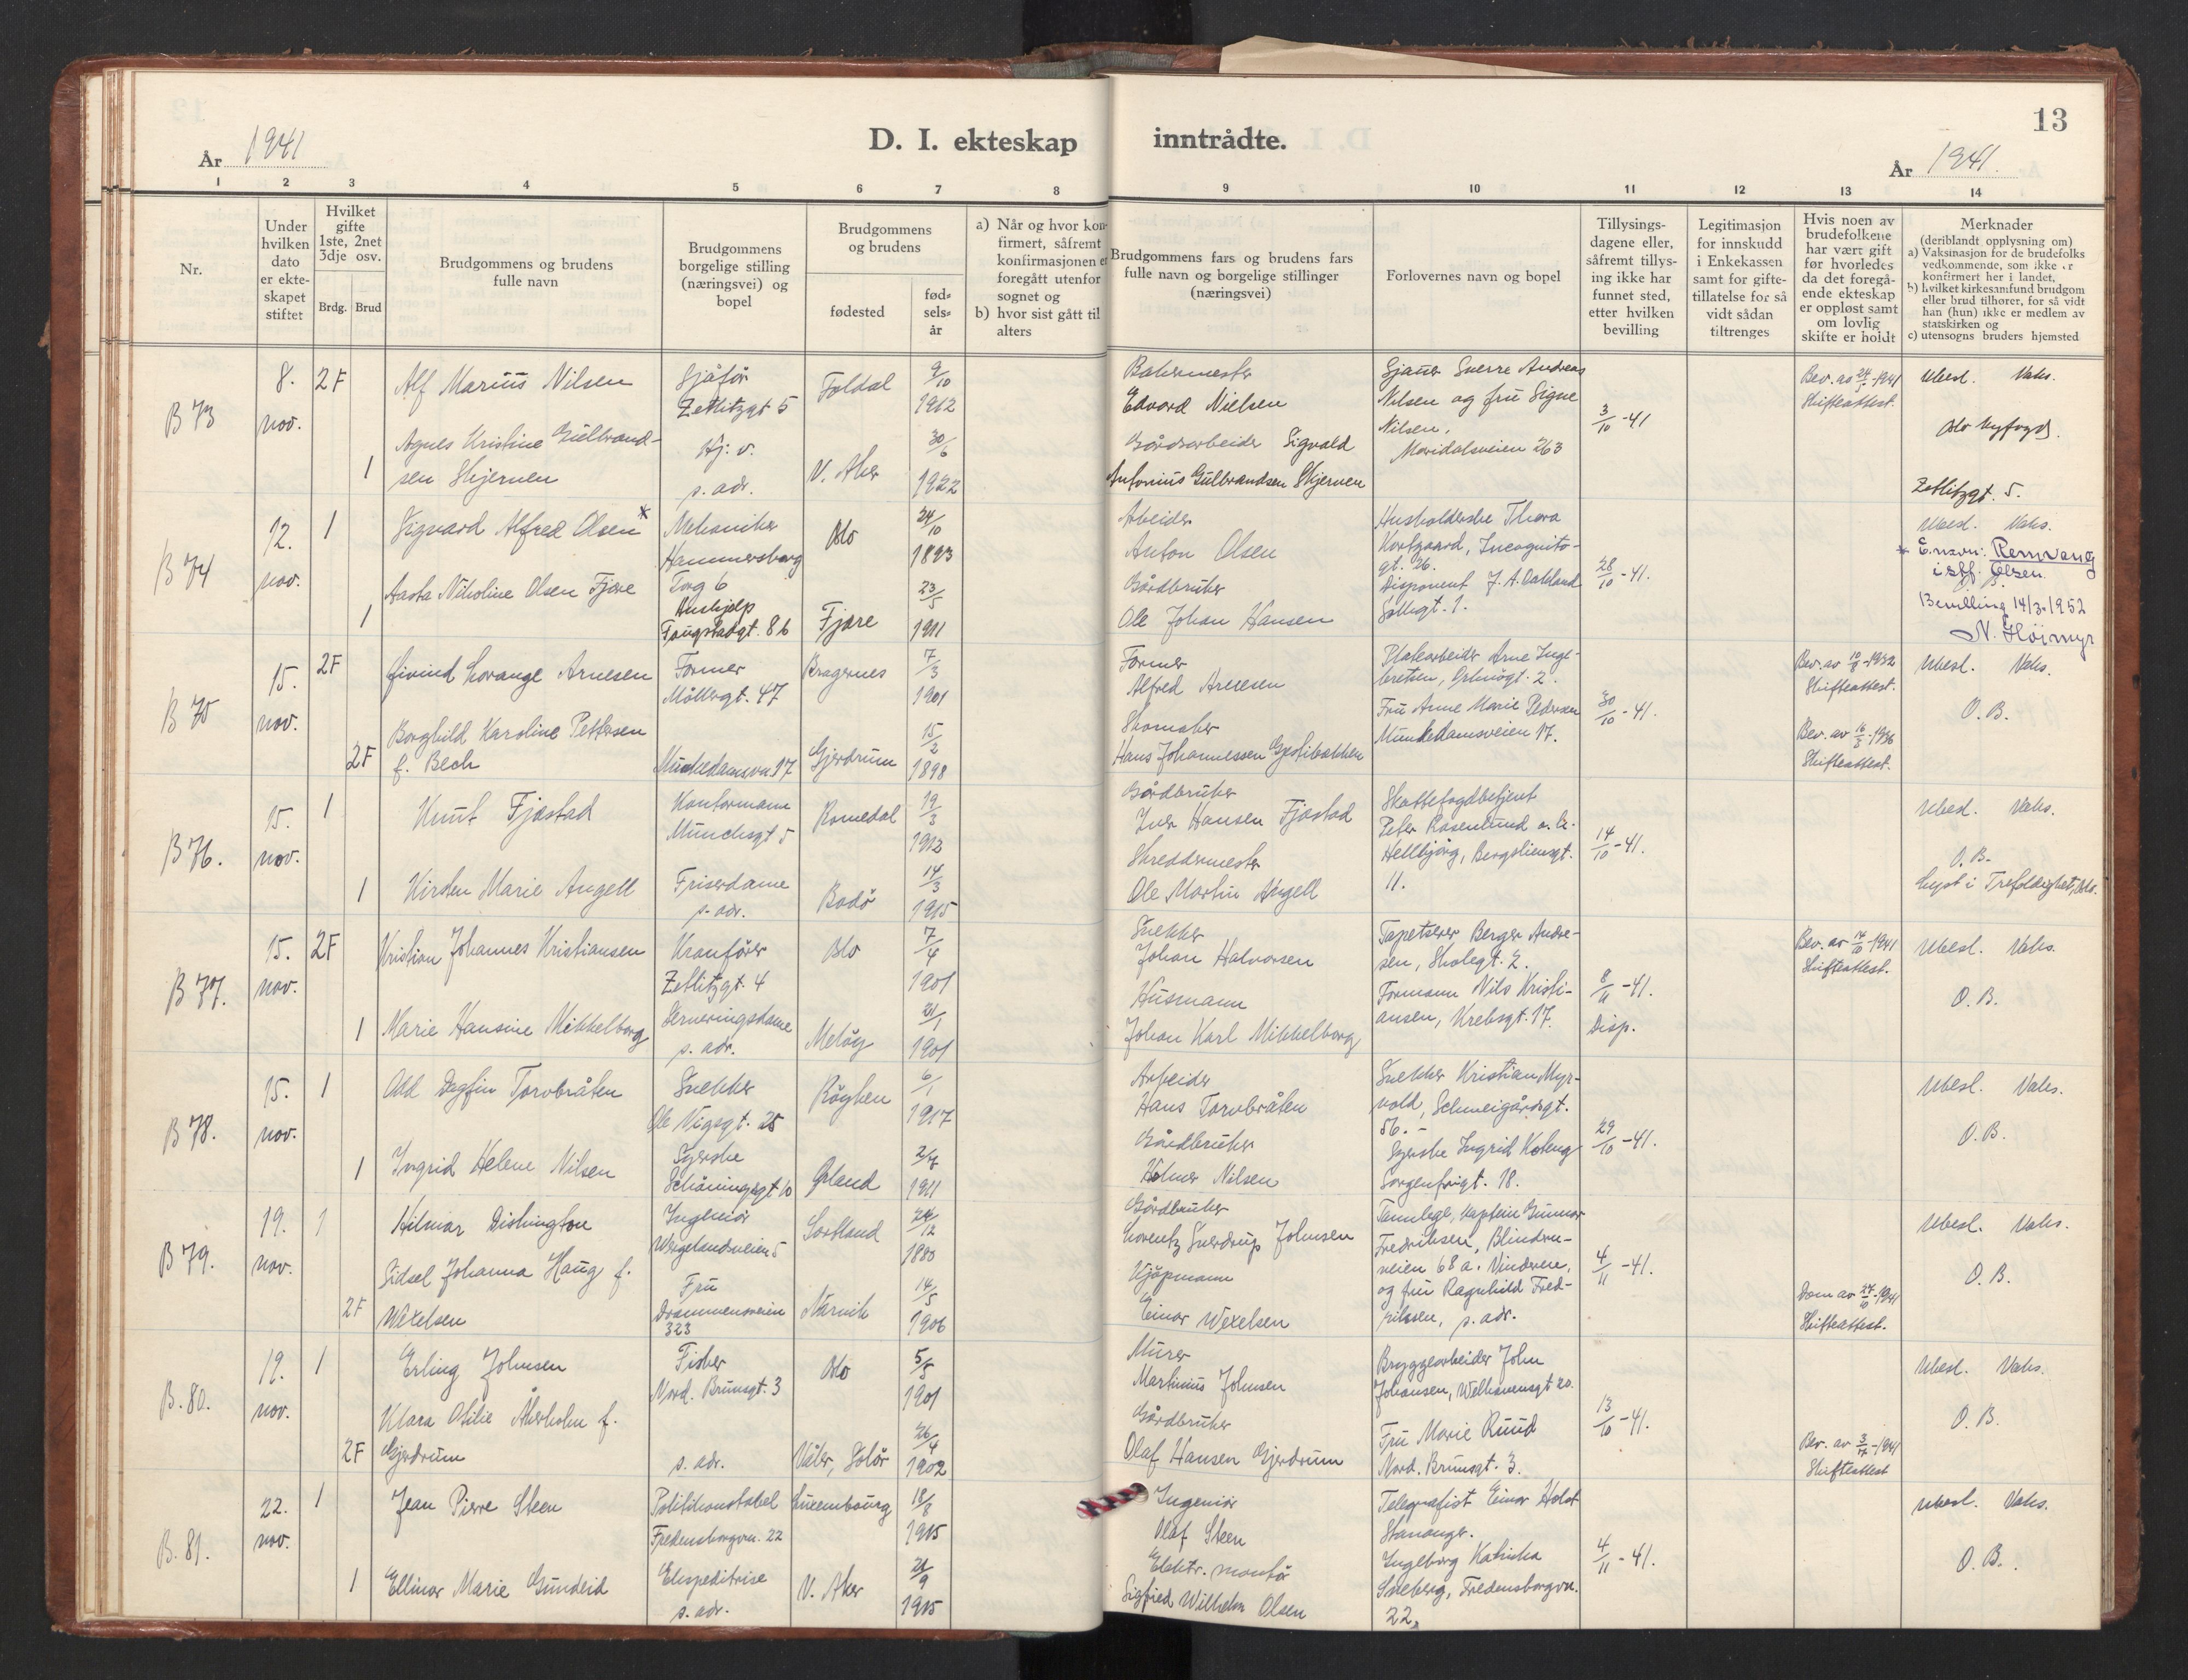 13
År 1941
D. I. ekteskap inntrådte.
År 1941.
1 2 3 4 5 6 7 8 9 10 11 12 13 14
Nr.
Under
hvilken
dato
er ekte-
skapet
stiftet
Hvilket
gifte
1ste, 2net
3dje osv.
Brdg. Brud
Brudgommens og brudens
fulle navn
Brudgommens
borgelige stilling
(næringsvei) og
bopel
Brudgommens
og brudens
fødested
fød-
sels-
år
a) Når og hvor kon-
firmert, såfremt
konfirmasjonen er
foregått utenfor
sognet og
b) hvor sist gått til
alters
Brudgommens fars og brudens fars
fulle navn og borgelige stillinger
(næringsvei)
Forlovernes navn og bopel
Tillysings-
dagene eller,
såfremt tillys-
ing ikke har
funnet sted,
etter hvilken
bevilling
Legitimasjon
for innskudd
i Enkekassen
samt for gifte-
tillatelse for så
vidt sådan
tiltrenges
Hvis noen av
brudefolkene
har vært gift
før hvorledes
da det foregå-
ende ekteskap
er oppløst samt
om lovlig
skifte er holdt
Merknader
(deriblandt opplysning om)
a) Vaksinasjon for de brudefolks
vedkommende, som ikke er
konfirmert her i landet,
b) hvilket kirkesamfund brudgom
eller brud tilhører, for så vidt
han (hun) ikke er medlem av
statskirken og
c) utensogns bruders hjemsted
B 73
8.
nov.
2F
1
Alf Marius Nilsen
Agnes Kristine Gulbrand-
sen Skjerven
Sjåfør
Zetlitzgt 5
Hj. v.
s. adr.
Foldal
V. Aker
9/10
1912
30/6
1922
Bakermester
Edvard Nielsen
Gårdsarbeider Sigvald
Antonius Gulbrandsen Skjerven
Sverre Andreas
Nilsen og fru Signe
Nilsen,
Maridalsveien 263
3/10-41
Bev. av 24/5-1941
Skifteattest.
Ubesl. Vaks.
Oslo byfogd.
Zetlitzgt. 5.
B 74
12.
nov.
1
1
Sigvard Alfred Olsen*
Aasta Nikoline Olsen Fjære
Mekaniker
Hammersborg
Torg 6
Hushjelp
Fougstadgt. 8b
Oslo
Fjære
24/10
1893
23/5
1911
Arbeider
Anton Olsen
Gårdbruker
Ole Johan Hansen
Husholderske Thora
Kortgaard, Incognito-
gt. 26.
Disponent J. A. Dahland
Solligt. 1.
28/10-41.
Ubesl. Vaks.
* E. navn: Remvang
i stf. Olsen.
Bevilling 14/3-1952
N. Høimyr
B 75
15.
nov.
2F
2F
Øivind Lorange Arnesen
Borghild Karoline Pettersen
f. Bech
Former
Møllergt. 47
Munkedamsvn 17
Bragernes
Gjerdrum
7/3
1901
15/2
1898
Former
Alfred Arnesen
Skomaker
Hans Johannessen
Platearbeider Arne Inge-
bretsen, 2.
Fru Anne Marie Pedersen
Munkedamsveien 17.
30/10-41.
Bev. av 10/8-1932
Skifteattest.
Bev. av 16/3-1936
Skifteattest.
Ubesl. Vaks.
O. B.
B 76.
15.
nov.
1
1
Knut Fjæstad
Kirsten Marie Angell
Kontormann
Munchsgt 5
Friserdame
s. adr.
Romedal
Bodø
19/3
1913
14/3
1915
Gårdbruker
Iver Hansen Fjæstad
Skreddermester
Ole Martin Angell
Skattefogdbetjent
Peter Rosenlund o. h.
Hellbjørg, Bergsliensgt.
11.
14/10-41.
Ubesl. Vaks.
O. B.
Lyst i Trefoldighet, Oslo.
B 77.
15.
nov.
2F
1
Kristian Johannes Kristiansen
Marie Hansine Mikkelborg
Kranfører
Zetlitzgt. 4
Serveringsdame
s. adr.
Oslo
Meløy
7/4
1901
21/1
1901
Snekker
Johan Halvorsen
Husmann
Johan Karl Mikkelborg
Tapetserer Berger Andre-
sen, Skolegt. 2.
Formann Nils Kristi-
ansen, Krebsgt. 17.
8/11-41.
Disp.
Bev. av 14/10-1941
Skifteattest.
Ubesl. Vaks.
O. B.
B 78.
15.
nov.
1
1
Odd Dagfin Torvbråten
Ingrid Helene Nilsen
Snekker
Ole Vigsgt. 25
Syerske
Schøningsgt 10
Røyken
Ørland
6/1
1917
2/7
1911
Arbeider
Hans Torvbråten
Gårdbruker
Holmer Nilsen
Snekker Kristian Myr-
vold, Schweigårdsgt.
56. -
Syerske Ingrid Koteng
Sorgenfrigt. 18.
29/10-41.
Ubesl. Vaks.
O. B.
B 79.
19.
nov.
1
2F
Hilmar Dishington
Sidsel Johanna Haug f.
Wexelsen
Ingeniør
Wergelandsveien 5
Fru
Drammensveien
323
Sortland
Narvik
24/12
1880
14/5
1906
Gårdbruker
Lorentz Sverdrup Johnsen
Kjøpmann
Einar Wexelsen
Tannlege, Kaptein Gunnar
Fredriksen, Blindern-
veien 68 a. Vinderen,
og fru Ragnhild Fred-
riksen, s. adr.
4/11-41.
Dom av 27/10-1941
Skifteattest.
Ubesl. Vaks.
O. B.
B. 80.
19.
nov.
1
2F
Erling Johnsen
Klara Otilie Åkerholm f.
Gjerdrum
Fisker
Nord. Brunsgt. 3
s. adr.
Oslo
Våler, Solør
5/5
1901
26/4
1902
Murer
Martinius Johnsen
Gårdbruker
Olaf Hansen Gjerdrum
Bryggearbeider John
Johansen, Welhavensgt 20.
Fru Marie Ruud
Nord. Brunsgt. 3.
13/10-41.
Bev. av 3/4-1941
Skifteattest
Ubesl. Vaks.
O. B.
B. 81.
22.
nov.
1
1
Jean Pierre Steen
Ellinor Marie Gundeid
Politikonstabel
Fredensborgvn. 22
Ekspeditrise
s. adr.
Luxembourg
V. Aker
18/8
1915
21/9
1915
Ingeniør
Olaf Steen
Elektr. montør
Sigfried Wilhelm Olsen
Telegrafist Einar Holst
Stavanger.
Ingeborg Katinka
Sneberg, Fredensborgvn.
22,
4/11-41.
Ubesl. Vaks.
O. B.